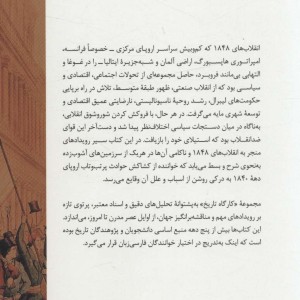 انقلاب‌های ۱۸۴۸ که کم‌وبیش سراسر اروپای مرکزی ــ خصوصاً فرانسه،
امپراتوری هاپسبورگ، اراضی آلمان و شبه‌جزیرهٔ ایتالیا ــ را در غوغا و
التهابی بی‌مانند فروبرد، حاصل مجموعه‌ای از تحولات اجتماعی، اقتصادی و
سیاسی بود که از انقلاب صنعتی، ظهور طبقهٔ متوسط، تلاش در راه برپایی
حکومت‌های لیبرال، رشد روحیهٔ ناسیونالیستی، نارضایتی عمیق اقتصادی و
توسعهٔ شهری مایه می‌گرفت. در هر حال، با فروکش کردن شوروشوق انقلابی،
به‌ناگاه در میان دستجات سیاسی اختلاف‌نظر پیدا شد و دست‌آخر این قوای
ضدانقلاب بود که استیلای خود را بازیافت. این کتاب سیر رویدادهای
منجر به انقلاب‌های ۱۸۴۸ و ناکامی آن‌ها در هریک از سرزمین‌های آشوب‌زده
به‌نحوی شرح و بسط می‌یابد که خواننده از کشاکش حوادث پرتب‌وتاب اروپای
دههٔ ۱۸۴۰ به درکی روشن از اسباب و علل آن وقایع می‌رسد.
مجموعهٔ «کارگاه تاریخ» به‌پشتوانهٔ تحلیل‌های دقیق و اسناد معتبر، پرتوی تازه
بر رویدادهای مهم و مناقشه‌برانگیز جهان، از اوایل عصر مدرن تا امروز، می‌اندازد.
این کتاب‌ها بیش از پنج دهه منبع اساسی دانشجویان و پژوهندگان تاریخ بوده
است که اینک به‌تدریج در اختیار خوانندگان فارسی‌زبان قرار می‌گیرد.